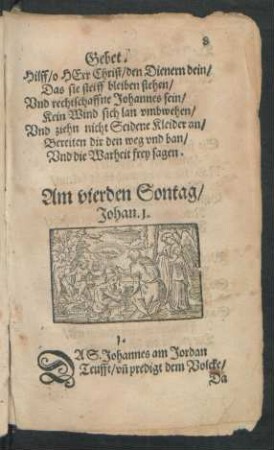 8
Gebet.
Hilff/o HErr Christ/den Dienern dein/
Das sie steiff bleiben stehen/
Vnd rechtschaffne Johannes sein/
Kein Wind sich lan vmbwehen/
Vnd ziehn nicht Seidene Kleider an/
Bereiten dir den weg vnd ban/
Vnd die Warheit frey sagen.
Am vierden Sontag/
Johan. 1.
1.
DA S. Johannes am Jordan
Teufft/vñ predigt dem Volcke/
Da